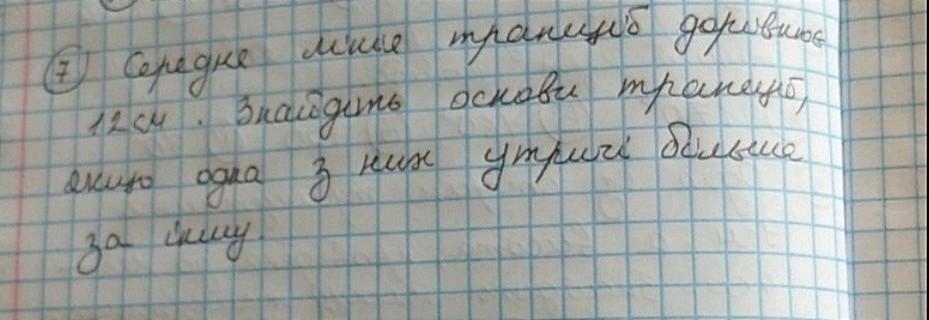 7 Середня лінія трапеції дорівнює
12 см. Знайдіть основи трапеції,
якщо одна з них утричі більша
за іншу